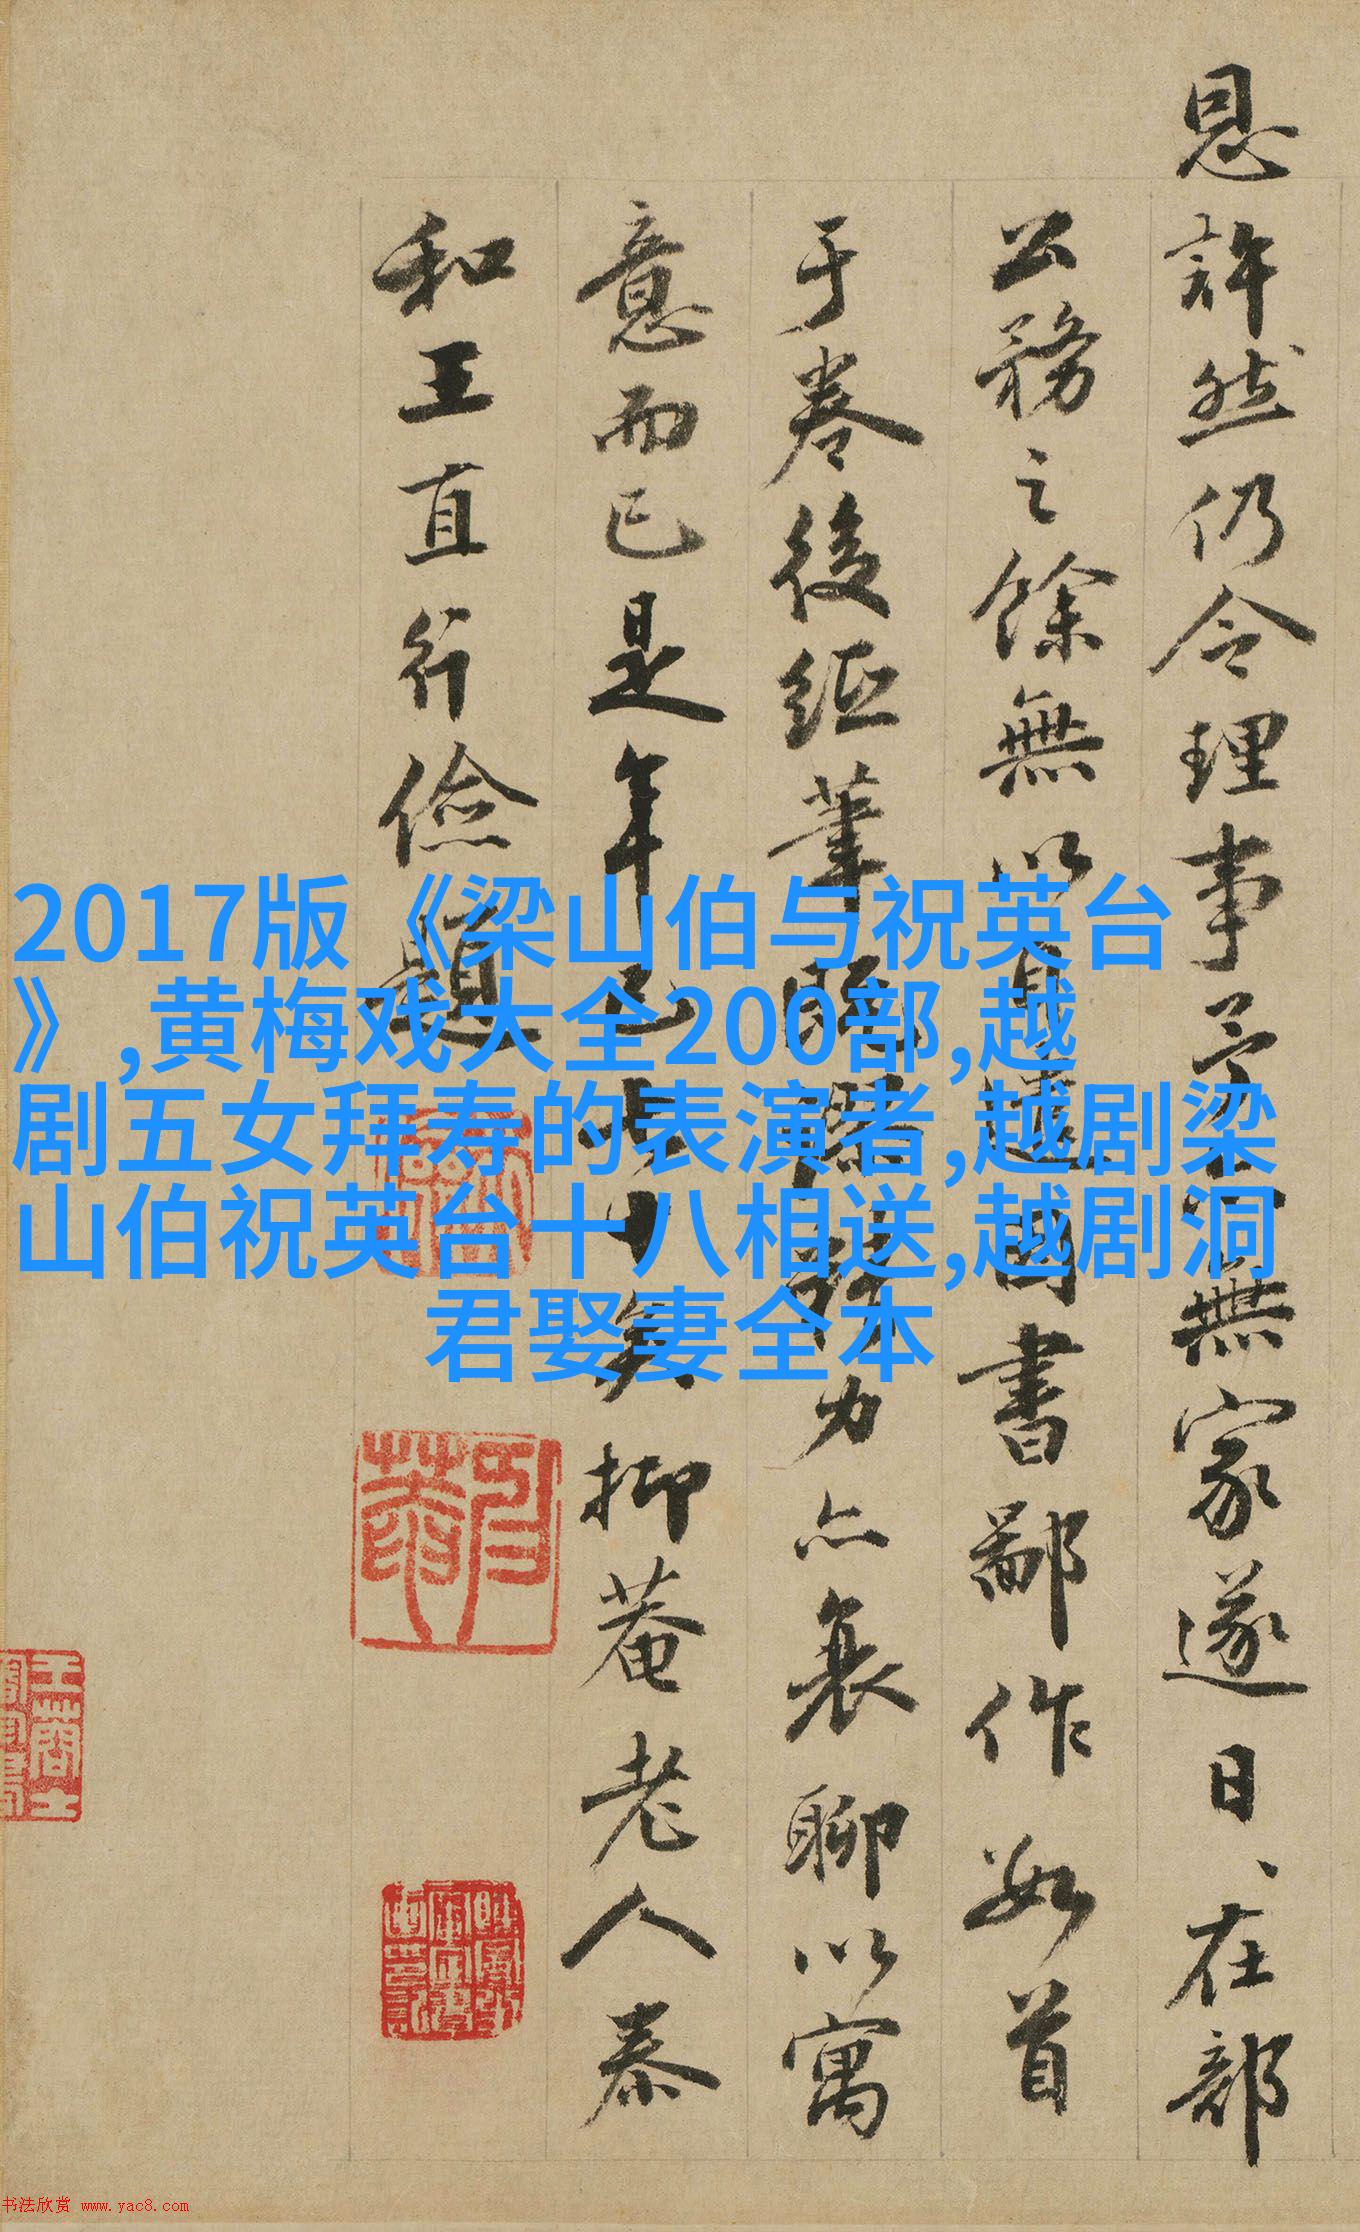 恩許然仍令理事予無家遂日、在部
公務之餘無以自遣因書鄙作數首
于卷後紙筆力亦衰聊以寓
意而已是年已七十矣抑菴老人泰
和王直行儉題
2017版《梁山伯与祝英台
》,黄梅戏大全200部,越
剧五女拜寿的表演者,越剧梁
山伯祝英台十八相送,越剧洞
君娶妻全本
书法欣赏 www.yac8.com